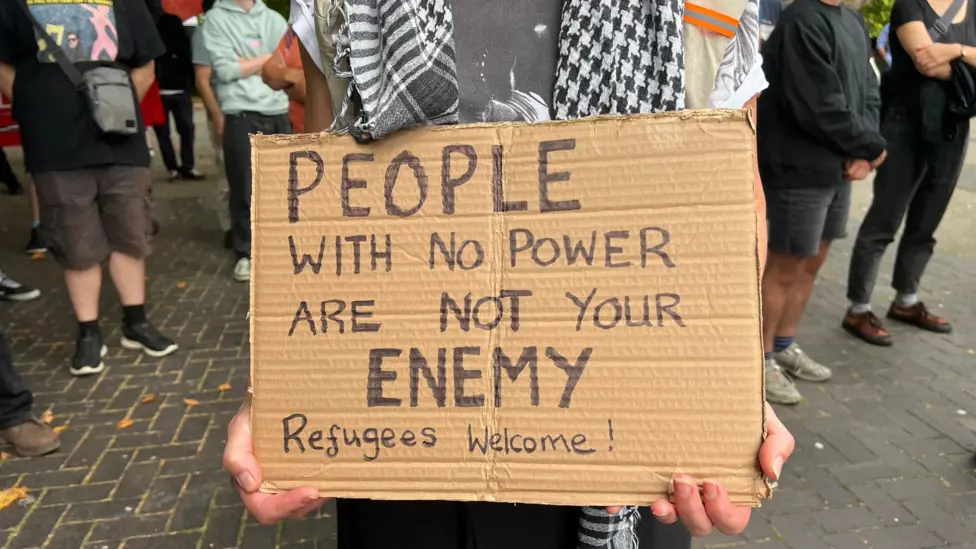 PEOPLE
WITH NO POWER
ARE NOT YOUR
ENEMY
Refugees Welcome!